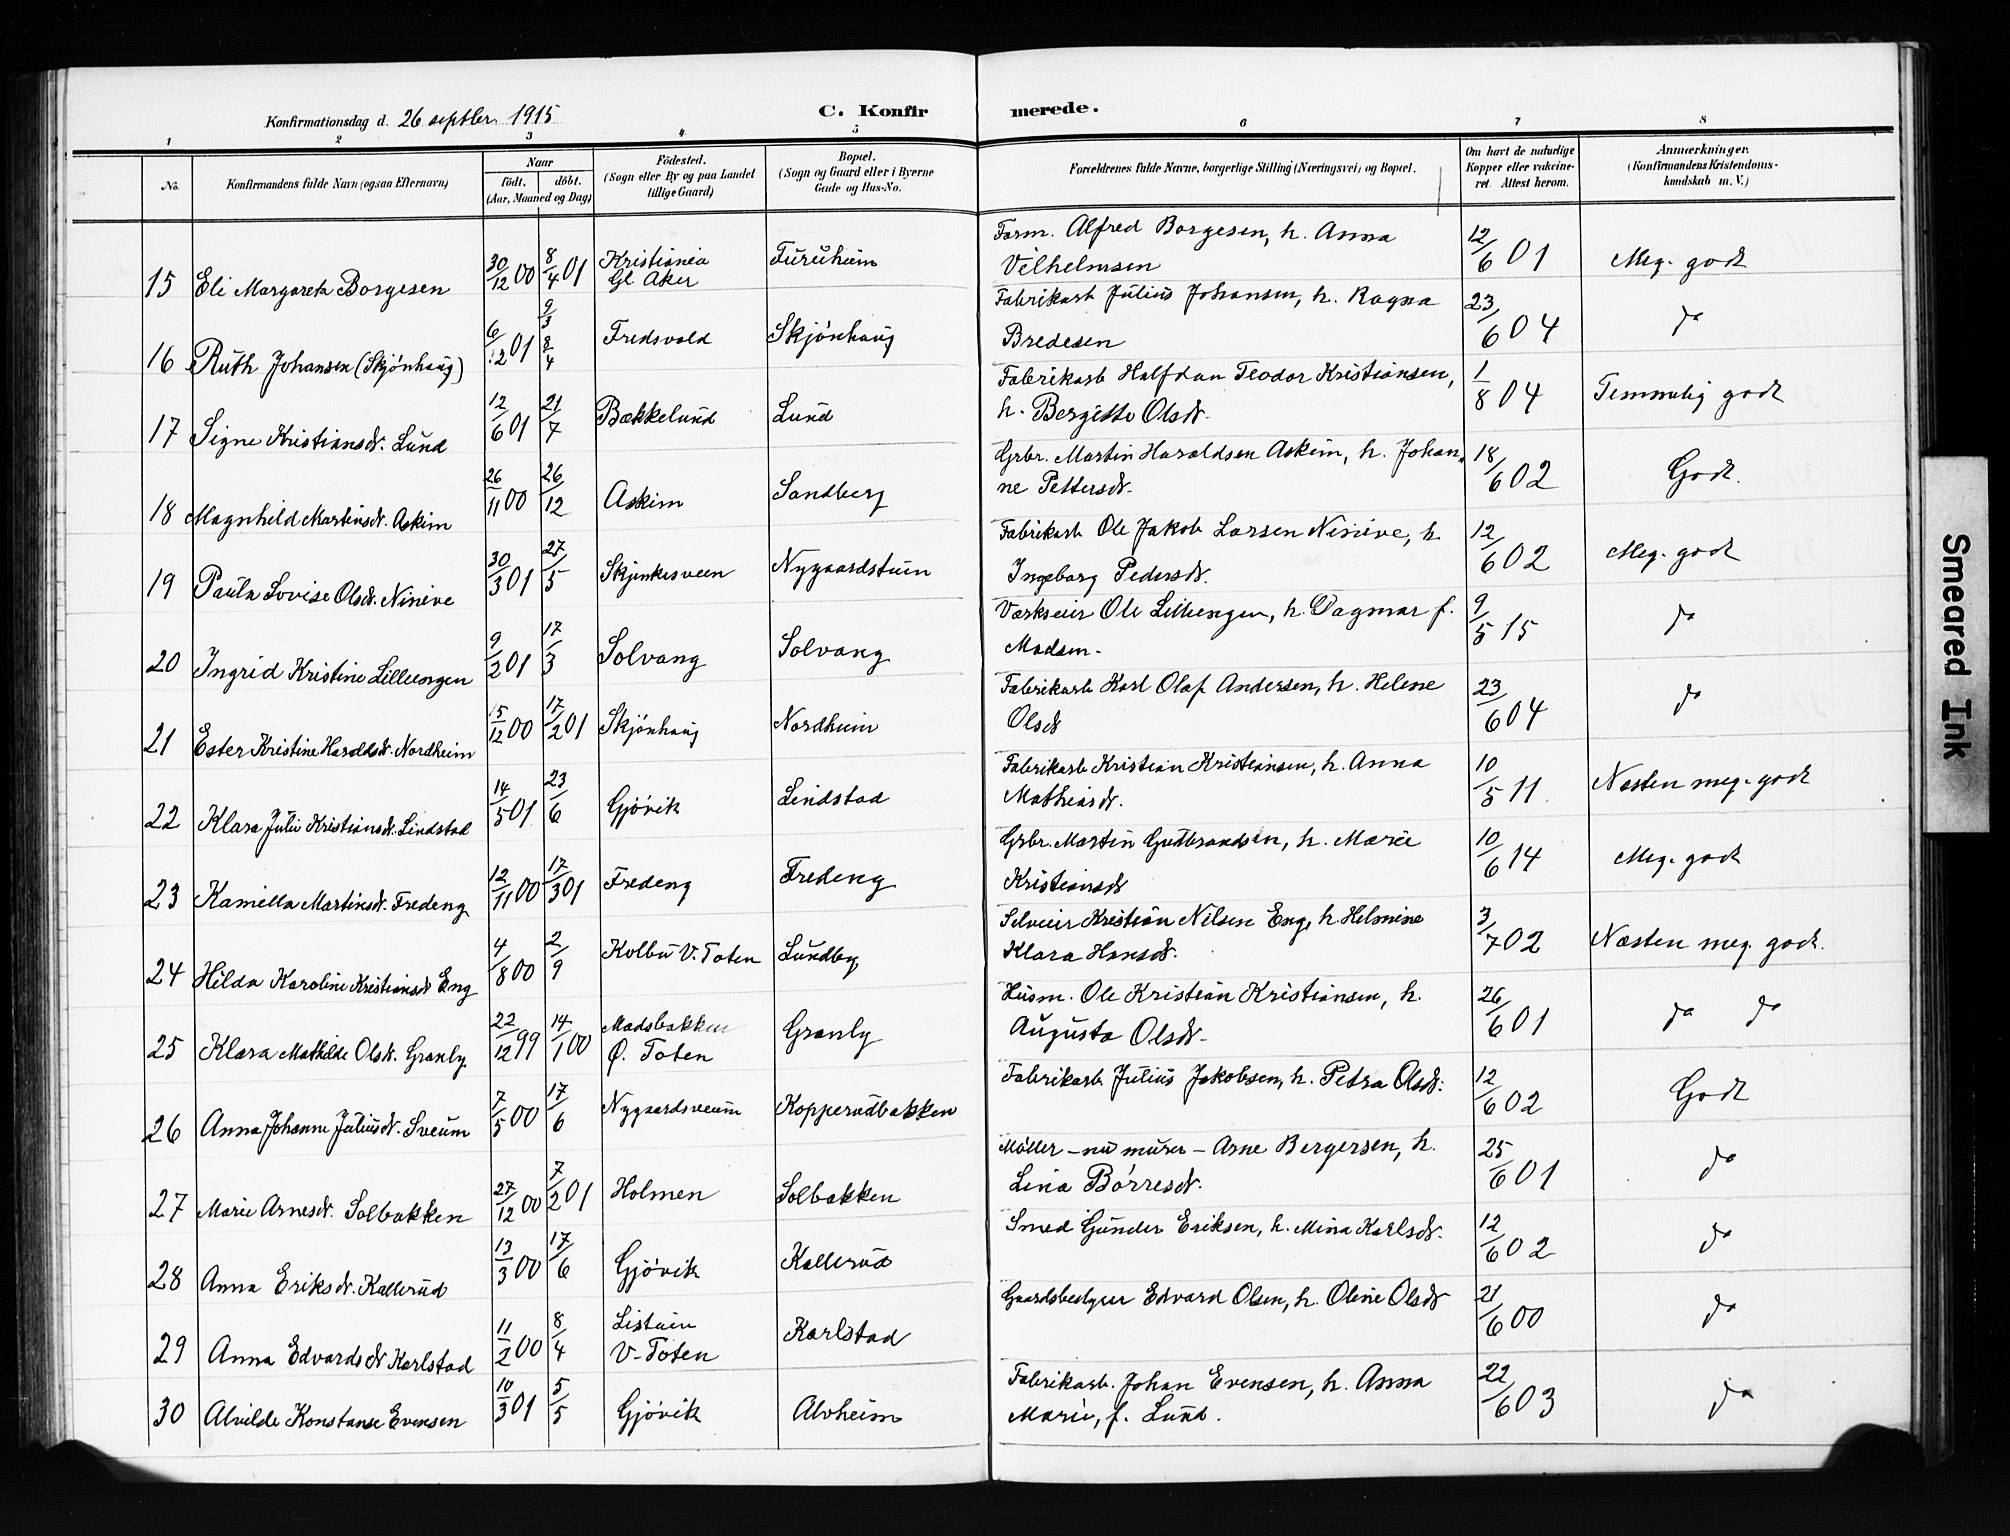 Konfirmationsdag d. 26 septbr. 1915
C. Konfirmerede.
1 2 3 4 5 6 7 8
No. Konfirmandens fulde Navn (ogsaa Efternavn) Naar født. døbt. (Aar, Maaned og Dag) Fødested. (Sogn eller By og paa Landet tillige Gaard) Bopæl. (Sogn og Gaard eller i Byerne Gade og Hus-No. Forældrenes fulde Navne, borgerlige Stilling (Næringsvei) og Bopæl. Om havt de naturlige Kopper eller vakcineret. Attest herom. Anmærkninger. (Konfirmandens Kristendomskundskab m. V.)
15 Eli Margareta Borgesen 30/12 00 8/4 01 Kristiania Gl Aker Furuheim Form. Alfred Borgesen, h. Anna Vilhelmsen 12/6 01 Meg. godt
16 Ruth Johansen (Skjønhaug) 6/12 01 9/3 8/4 Fredsvold Skjønhaug Fabrikarb Julius Johansen, h. Ragna Bredesen 23/6 04 do
17 Signe Kristiansdt. Lund 12/6 01 21/7 Bækkelund Lund Fabrikarb Halfdan Teodor Kristiansen, h. Bergitte Olsdt. 1/8 04 Temmelig godt
18 Magnhild Martinsdt. Askim 26/11 00 26/12 Askim Sandberg Grbr. Martin Haraldsen Askim, h. Johanne Pettersdt. 18/6 02 Godt.
19 Paula Lovise Olsdt. Ninive 30/3 01 27/5 Skjenkesveen Nygaardstuen Fabrikarb Ole Jakob Larsen Ninive, h. Ingeborg Pedersdt. 12/6 02 Meg. godt
20 Ingrid Kristine Lilleengen 9/2 01 17/3 Solvang Solvang Værkseier Ole Lilleengen, h. Dagmar f. Madsen. 9/5 15 do
21 Ester Kristine Haraldsdt. Nordheim 15/12 00 17/2 01 Skjønhaug Nordheim Fabrikarb Karl Olaf Andersen, h. Helene Olsdt 23/6 04 do
22 Klara Julie Kristiansdt. Lindstad 14/5 01 23/6 Gjøvik Lindstad Fabrikarb Kristian Kristiansen, h. Anna Mathiasdt. 10/5 11 Næsten meg. godt
23 Kamilla Martinsdt. Fredeng 12/11 00 17/3 01 Fredeng Fredeng Grbr. Martin Gudbrandsen, h. Marie Kristiansdt 10/6 14 Meg. godt
24 Hilda Karoline Kristiansdt Eng 4/8 00 2/9 Kolbu V. Toten Lundby Selveier Kristian Nilsen Eng, h Helmine Klara Hansdt. 3/7 02 Næsten meg. godt.
25 Klara Mathilde Olsdt. Granly 22/12 99 14/1 00 Madsbakken Ø. Toten Granly Husm. Ole Kristian Kristiansen, h. Augusta Olsdt. 26/6 01 do do
26 Anna Johanne Juliusdt. Sveum 7/5 00 17/6 Nygaardsveum Kopperudbakken Fabrikarb. Julius Jakobsen, h. Petra Olsdt. 12/6 02 Godt
27 Marie Arnesdt. Solbakken 27/12 00 7/2 01 Holmen Solbakken Møller - nu murer - Arne Bergersen, h. Lina Børresdt. 25/6 01 do
28 Anna Eriksdt. Kallerud 13/3 00 17/6 Gjøvik Kallerud Smed Gunder Eriksen, h. Mina Karlsdt. 12/6 02 do
29 Anna Edvardsdt Karlstad 11/2 00 8/4 Listuen V-Toten Karlstad Gaardsbestyrer Edvard Olsen, h. Oline Olsdt 21/6 00 do
30 Alvilde Konstanse Evensen 10/3 01 5/5 Gjøvik Alvheim Fabrikarb. Johan Evensen, h. Anna Marie, f. Lund. 22/6 03 do
Smeared Ink